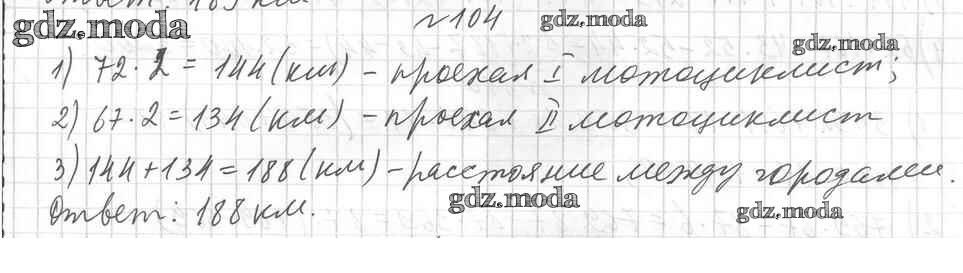 Ответ: 189 км
№104
gdz.moda gdz.moda
gdz.moda
1) 72·2=144(км) – проехал I мотоциклист;
2) 67·2=134(км) – проехал II мотоциклист
3) 144+134=188(км) – расстояние между городами.
Ответ: 188 км.
gdz.moda
gdz.moda